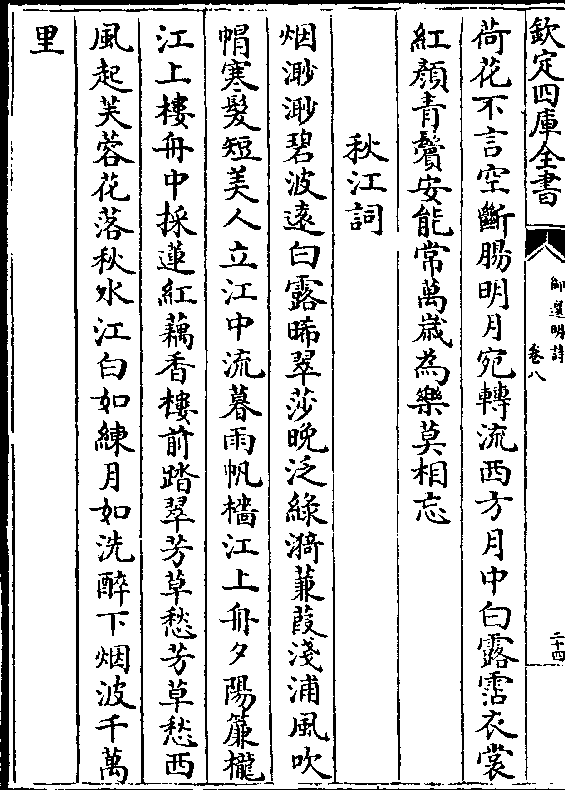 欽定四庫全書
御選明詩
卷八
二十四
荷花不言空斷腸明月宛轉流西方月中白露霑衣裳
紅顏青鬢安能常萬歲為樂莫相忘
秋江詞
烟渺渺碧波遠白露晞翠莎晚泛綠漪蒹葭淺浦風吹
帽寒髮短美人立江中流暮雨帆檣江上舟夕陽簾櫳
江上樓舟中採蓮紅藕香樓前踏翠芳草愁芳草愁西
風起芙蓉花落秋水江白如練月如洗醉下烟波千萬
里